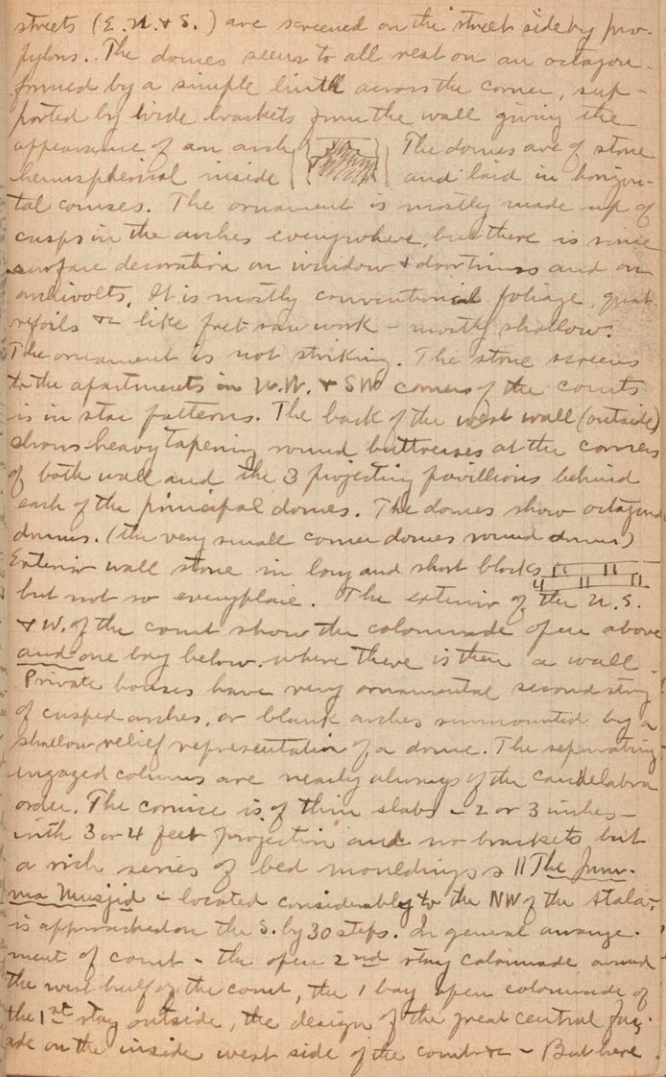 streets (E. N. & S.) are screened on the street side by pro-
pylons. The domes seem to all rest on an octagon
formed by a simple lintel across the corner, sup-
ported by wide brackets from the wall giving the
appearance of an arch The domes are of stone
hemispherical inside and laid in horizon-
tal courses. The ornament is mostly made up of
cusps in the arches everywhere, but there is some
surface decoration on window & door trims and on
archivolts. It is mostly conventional foliage, quat-
refoils &c like fret-saw work - mostly shallow.
The ornament is not striking. The stone screens
to the apartments in N.W. & SW corners of the courts
is in star patterns. The back of the west wall (outside)
shows heavy tapering round buttresses at the corners
of both wall and the 3 projecting pavillions behind
each of the principal domes. The domes show octagonal
drums. (the very small corner domes round drums)
Exterior wall stone in long and short blocks
but not so everyplace. The exterior of the N. S.
& W. of the court show the colonnade open above
and one bay below. where there is then a wall
Private houses have very ornamental second story
of cusped arches, or blank arches surmounted by a
shallow relief representation of a dome. The separating
engaged columns are nearly always of the candelabra
order. The cornice is of thin slabs - 2 or 3 inches -
with 3 or 4 feet projection and no brackets but
a rich series of bed mouldings || The Jum-
ma Musjid - located considerably to the NW of the Atala,
is approached on the S. by 30 steps. In general arrange-
ment of court - the open 2nd story colonnade around
the west half of the court, the 1 bay open colonnade of
the 1st story outside, the design of the great central faç-
ade on the inside west side of the court &c - But here